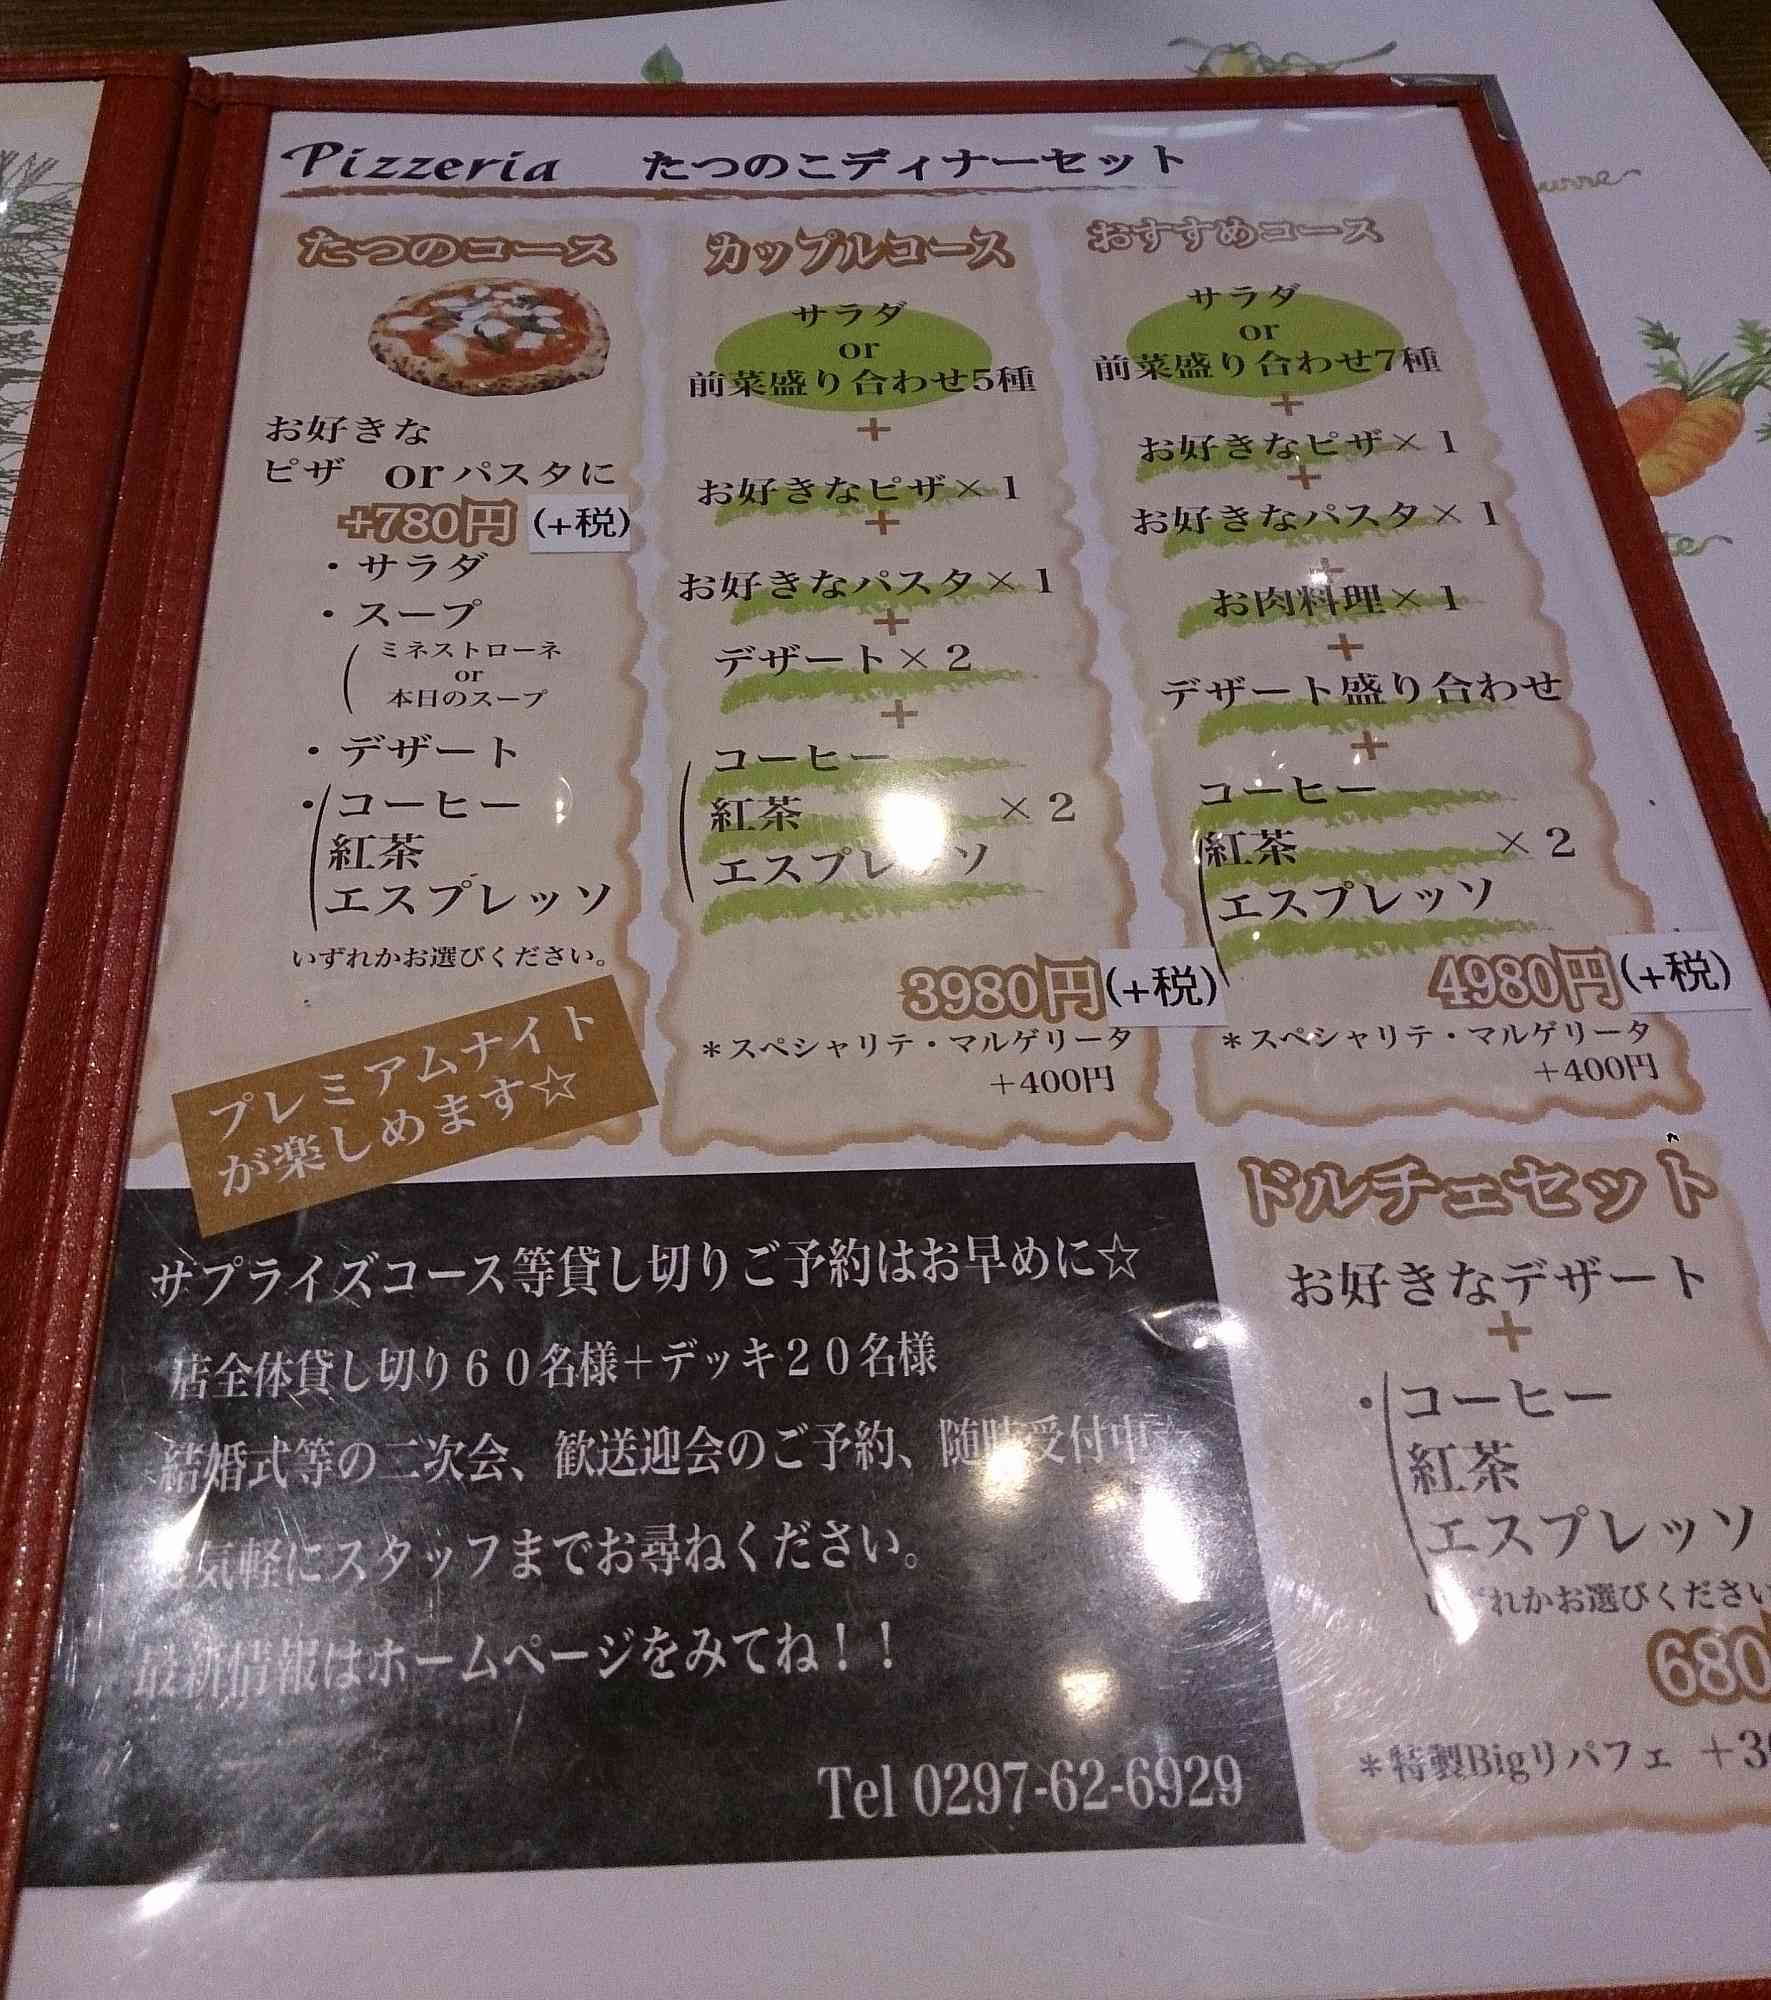 Pizzeria たつのこディナーセット
たつのコース
お好きな
ピザ orパスタに
+780円 (+税)
・サラダ
・スープ
ミネストローネ
or
本日のスープ
・デザート
・コーヒー
紅茶
エスプレッソ
いずれかお選びください。
カップルコース
サラダ
or
前菜盛り合わせ5種
+
お好きなピザ×1
+
お好きなパスタ×1
+
デザート×2
+
コーヒー
紅茶 ×2
エスプレッソ
3980円(+税)
*スペシャリテ・マルゲリータ
+400円
おすすめコース
サラダ
or
前菜盛り合わせ7種
+
お好きなピザ×1
+
お好きなパスタ×1
+
お肉料理×1
+
デザート盛り合わせ
+
コーヒー
紅茶 ×2
エスプレッソ
4980円(+税)
*スペシャリテ・マルゲリータ
+400円
プレミアムナイト
が楽しめます☆
サプライズコース等貸し切りご予約はお早めに☆
店全体貸し切り60名様+デッキ20名様
結婚式等の二次会、歓送迎会のご予約、随時受付中☆
お気軽にスタッフまでお尋ねください。
最新情報はホームページをみてね！！
Tel 0297-62-6929
ドルチェセット
お好きなデザート
+
・コーヒー
紅茶
エスプレッソ
いずれかお選びください
680
*特製Bigリパフェ +3